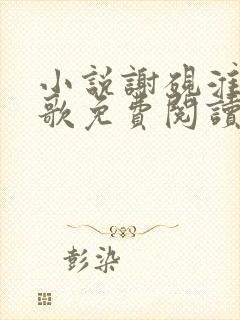 小說謝硯淮
歌免費閱讀
彭染